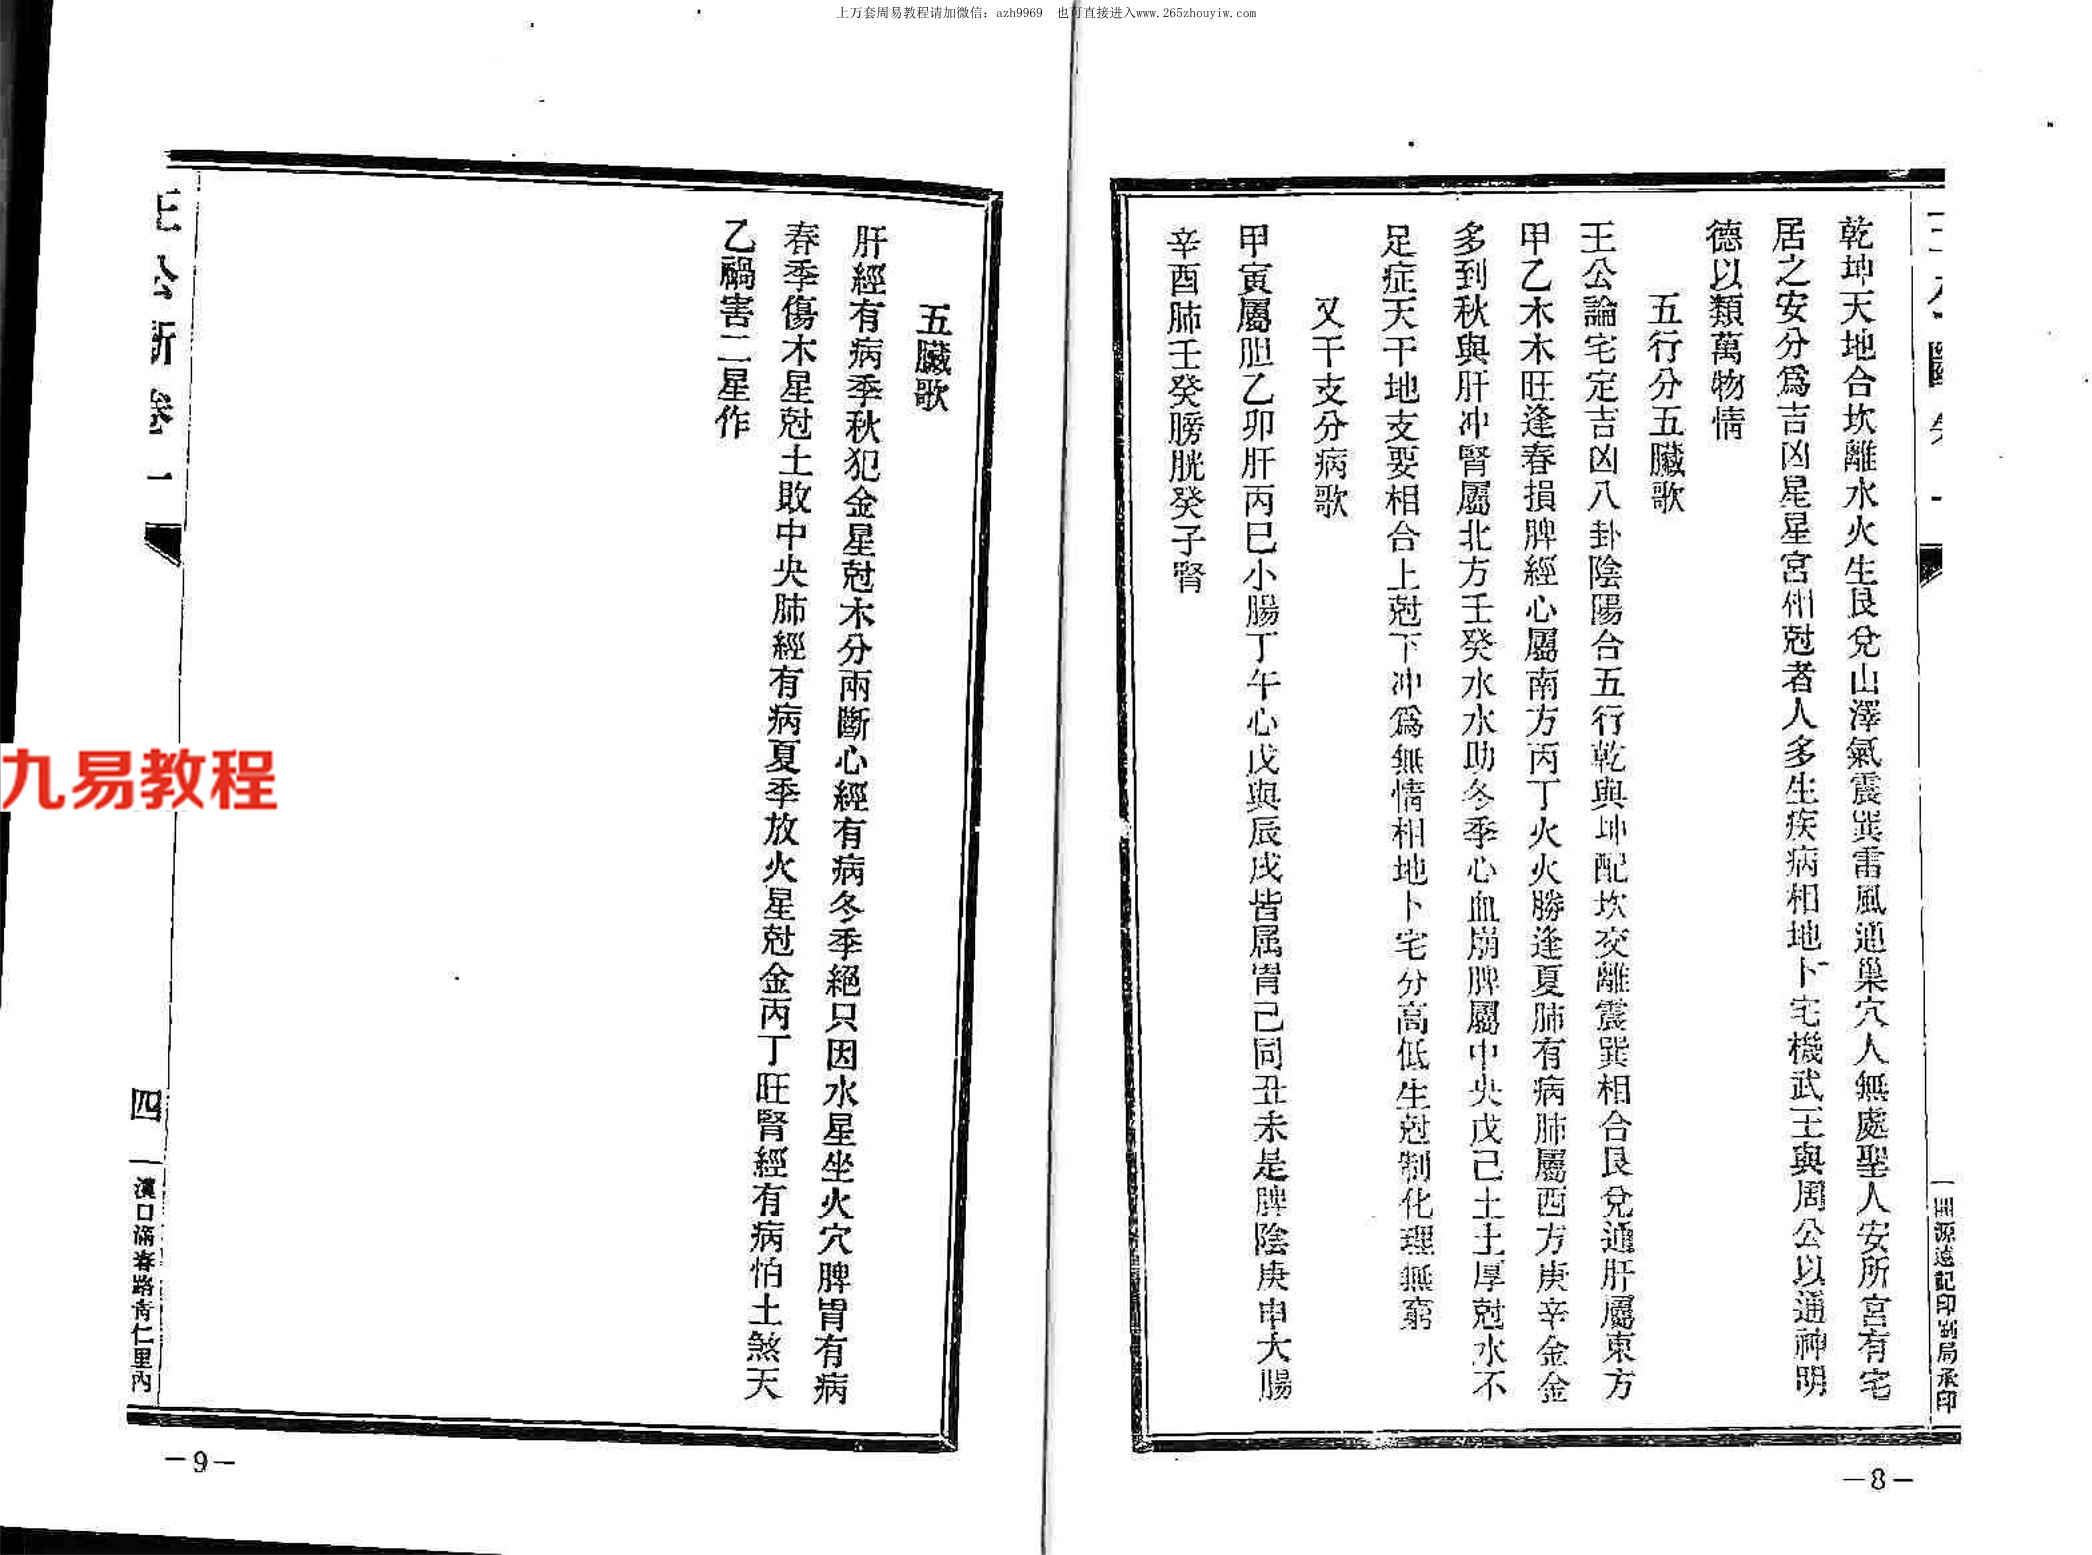 上万套周易教程请加微信：azh9969　也可直接进入www.265zhouyiw.com
乾坤天地合坎離水火生艮兌山澤氣震巽雷風通巢穴人無處聖人安所宮有宅
居之安分爲吉凶星星宮相尅者人多生疾病相地卜宅機武王與周公以通神明
德以類萬物情
五行分五臟歌
王公論宅定吉凶八卦陰陽合五行乾與坤配坎交離震巽相合艮兌通肝屬東方
甲乙木木旺逢春損脾經心屬南方丙丁火火勝逢夏肺有病肺屬西方庚辛金金
多到秋與肝冲腎屬北方壬癸水水助冬季心血崩脾屬中央戊己土土厚尅水不
足症天干地支要相合上尅下冲爲無情相地卜宅分高低生尅制化理無窮
又干支分病歌
甲寅屬胆乙卯肝丙巳小腸丁午心戊與辰戌皆属胃己同丑未是脾陰庚申大腸
辛酉肺壬癸膀胱癸子腎
開源遠記印刷局承印
—8—
五臟歌
肝經有病季秋犯金星尅木分兩斷心經有病冬季絕只因水星坐火穴脾胃有病
春季傷木星尅土敗中央肺經有病夏季放火星尅金丙丁旺腎經有病怕土煞天
乙禍害二星作
王公斷卷一
四
漢口滿春路青仁里內
—9—
九易教程